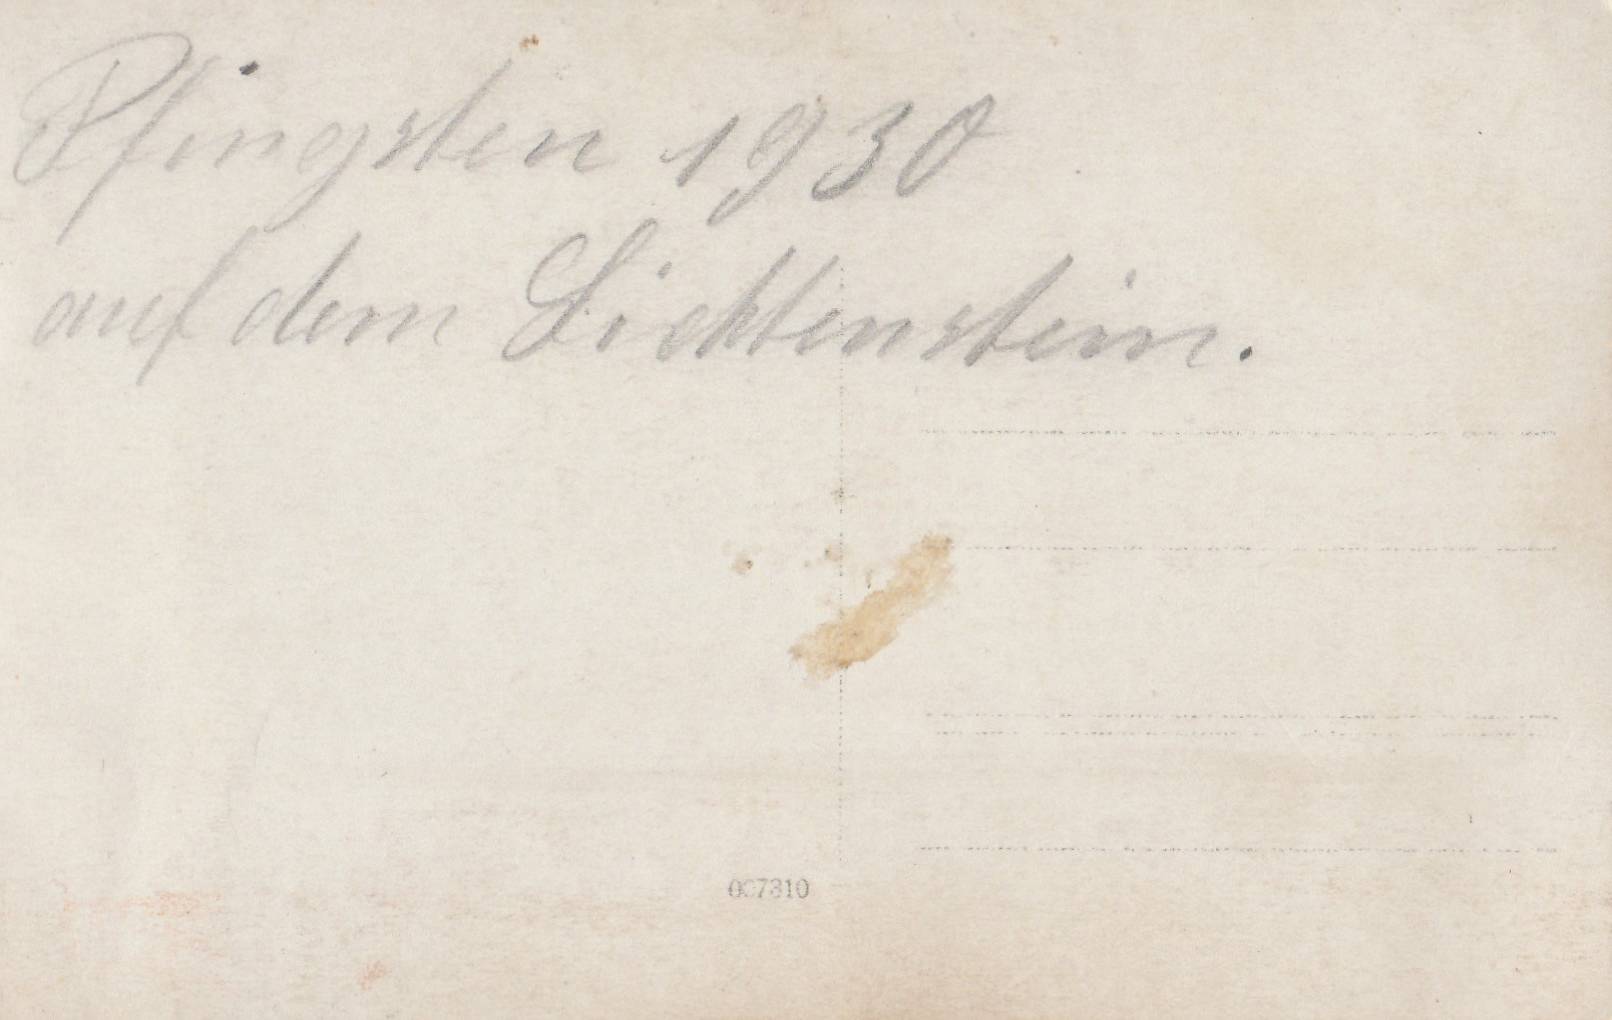 Pfingsten 1930
auf dem Lichtenstein.